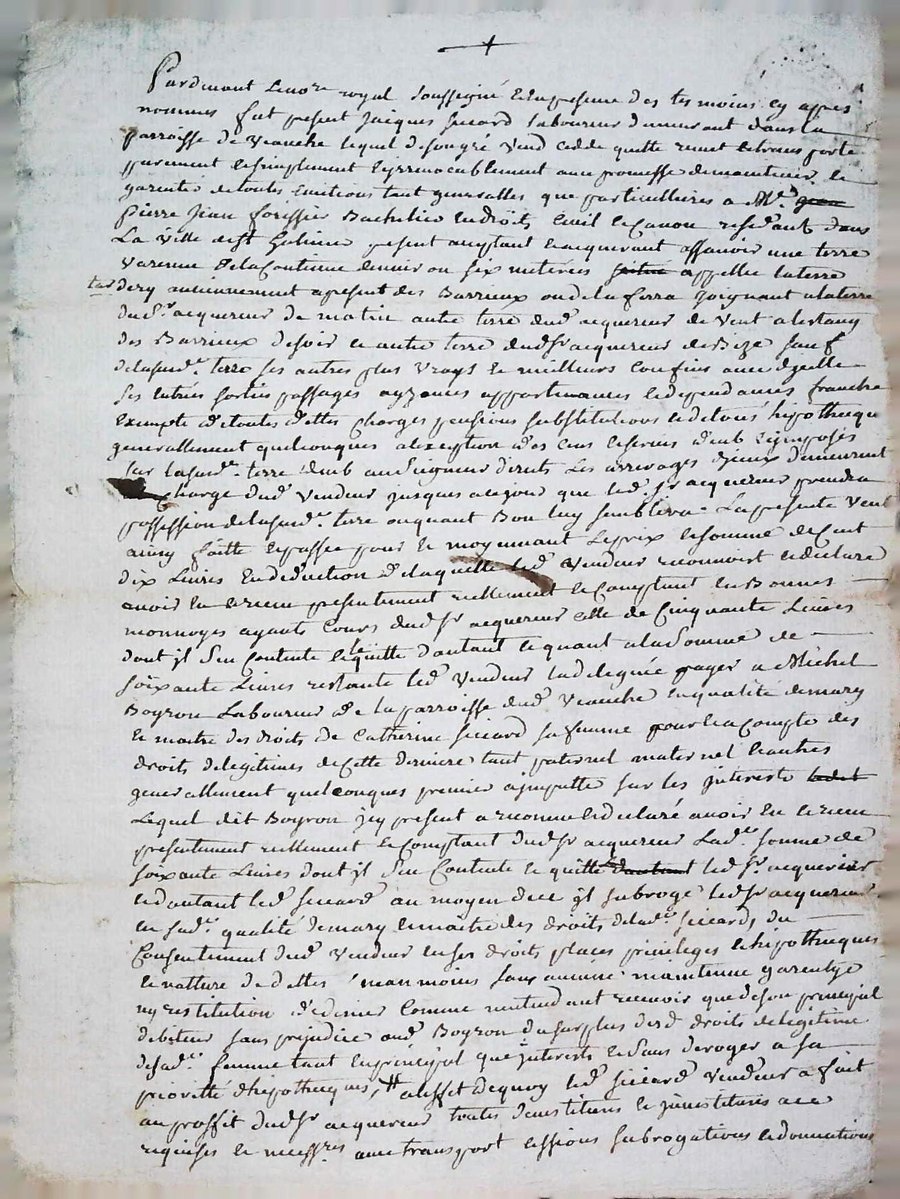 Pardevant le no.re royal soussigné et en presence des tesmoins cy apres
nommes fut present Jacques Siccard laboureur demeurant dans la
parroisse de Veauche lequel de son gré vend cedde quitte remet et transporte
purement et simplement et jrrevocablement avec promesse de maintenir et
garentie de toutes evictions tant generalles que particulieres a M.e
pierre jean forissier Bachelier en droits civil et canon resid.t dans
La ville de st Galmier present acceptant et acquerant assavoir une terre
varenne de la contenue denviron six meterées appellée la terre
dery anciennement a present des Barrieux ou de la serra joignant a la terre
dud s.r acquereur de matin autre terre dud acquereur de vent a lestang
des Barrieux de soir et autre terre dud sr acquereur de Bize sauf
de la sud.e terre ses autres plus vrays et meilleurs confins avec ycelle
ses entrées sorties passages ayzances appartenances et dependances franche
exempte de toutes dettes charges pensions substitutions et de tous hipotheque
generallement quelconques a exception des cens et servis deub et jmposés
sur lasud.e terre deub au seigneur direct les arrerages djceux demeurant
charge dud vendeur jusques a ce jour que led. sr acquereur prendra
possession de lasud.e terre ou quant Bon luy semblera. La presente vente
ainsy faitte et passée pour et moyennant le prix et somme de Cent
dix Livres en deduction de laquelle led vendeur reconnoist et declare
avoir eu et receu presentement reellement et Comptant en Bonnes
monnoyes ayants Cours dud sr acquereur celle de Cinquante Livres
dont jl sen Contente et le quitte dautant et quant a la somme de
soixante Livres restante led vendeur la deleguée payer a Michel
Boyron Laboureur de la parroisse dud Veauche en qualité de mary
et maitre des droits de Catherine Siccard sa femme pour et a compte des
droits de legitimes de Cette derniere tant paternel maternel et autres
generallement quelconques premier a jmputter sur les jnterests
Lequel dit Boyron jcy present a reconnu et declaré avoir eu et receu
presentement reellement et Comptant dud sr acquereur Lad.e somme de
soixante Livres dont jl sen Contente et quitte led sr. acquereur
et dautant led siccard au moyen de ce jl subroge led sr acquereur
en sad.e qualité de mary et maitre des droits de lad.e siccard, du
Consentement dud vendeur en ses droits places privileges et hipotheques
et natture de dettes neanmoins sans aucune maintenue garentye
ny restitution de denier comme nentendant recevoir que de son principal
debiteur sans prejudice aud Boyron du surplus desd droits de legitime
de sad.e femme tant en principal que jnterests et sans deroger a sa
priorité dhipotheques, a leffet de quoy led siccard vendeur a fait
au proffit dud sr acquereur toutes devestitures et jnvestitures a ce
requises et necess.res avec transport cessions subrogations et donnations